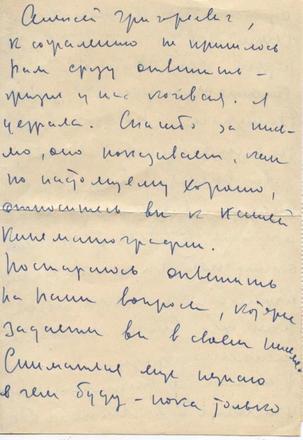 Алексей Григорьевич,
к сожалению не пришлось
Вам сразу ответить –
жизнь у нас кочевая. Я
уезжала. Спасибо за пись-
мо, оно показывает, как
по настоящему хорошо,
относитесь вы к нашей
кинематографии.
Постараюсь ответить
на Ваши вопросы, которые
задаёте вы в своем письме.
Сниматься еще неизвестно
в чем буду – пока только